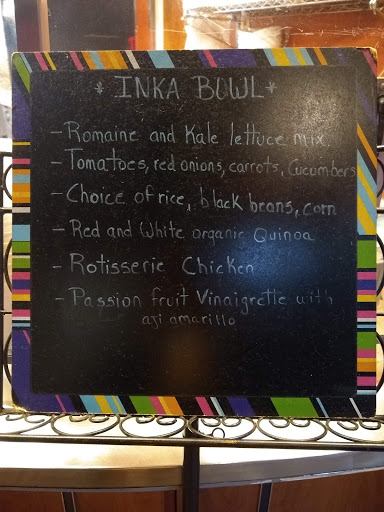 * INKA BOWL *
- Romaine and Kale lettuce mix.
- Tomatoes, red onions, carrots, Cucumbers
- Choice of rice, black beans, corn
- Red and White organic Quinoa
- Rotisserie Chicken
- Passion fruit Vinaigrette with
aji amarillo